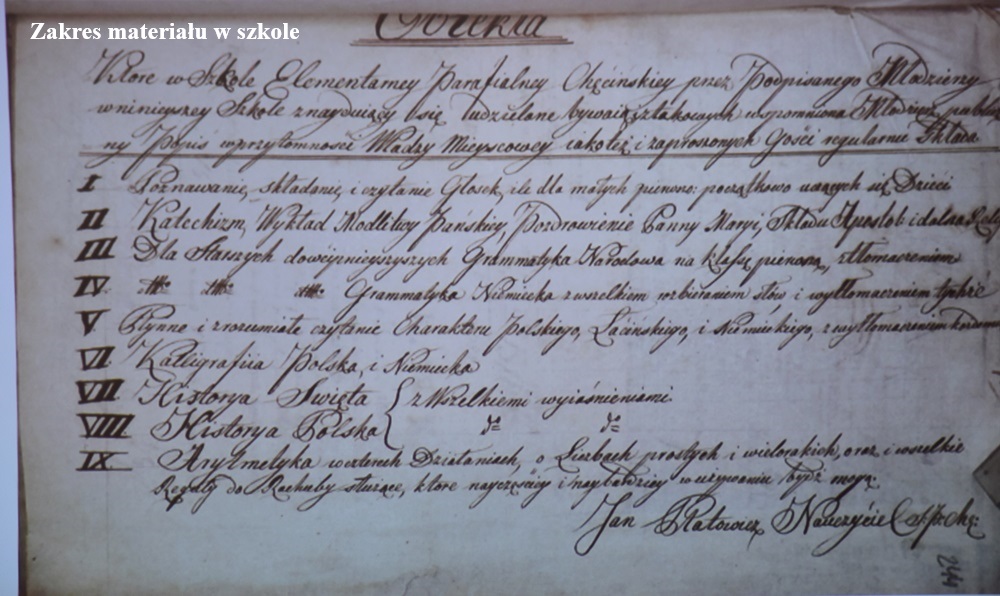 Zakres materiału w szkole
Obiekta
Które w Szkole Elementarney Parafialney Chęcińskiey przez Podpisanego Młodzieży
wninieyszey Szkole znayduiący się udzielane bywaią, ztakowych wspomniona Młodzież
ny Popis wprzytomności Władzy Mieyscowey iakoteż i zaproszonych Gości regularnie Składa
I Poznawanie, składanie, i czytanie Głosek, ile dla małych początkowo uczących się Dzieci
II Katechizm, Wykład Modlitwy Pańskiey, Pozdrowienie Panny Maryi, Składu Apostol: i dalsza
III Dla Starszych Grammatyka Narodowa na klassę pierwszą, ztłomaczeniem
IV. dtto dtto dtto Grammatyka Niemiecka zwszelkiem rozbieraniem słów i wytłomaczeniem tychże
V Płynne i zrozumiałe czytanie Charakteru Polskiego, Łacińskiego, i Niemieckiego, z wytłomaczeniem
VI Kalligrafiia Polska, i Niemiecka
VII Historya Swięta { z Wszelkiemi wyiaśnieniami
VIII Historya Polska do do
IX Arytmetyka wczterech Działaniach, o Liczbach prostych i wielorakich, oraz i wszelkie
Reguły do Rachuby służące, które nayczęściey i naybardziey w używaniu bydź mogą.
Jan Nauczyciel
244